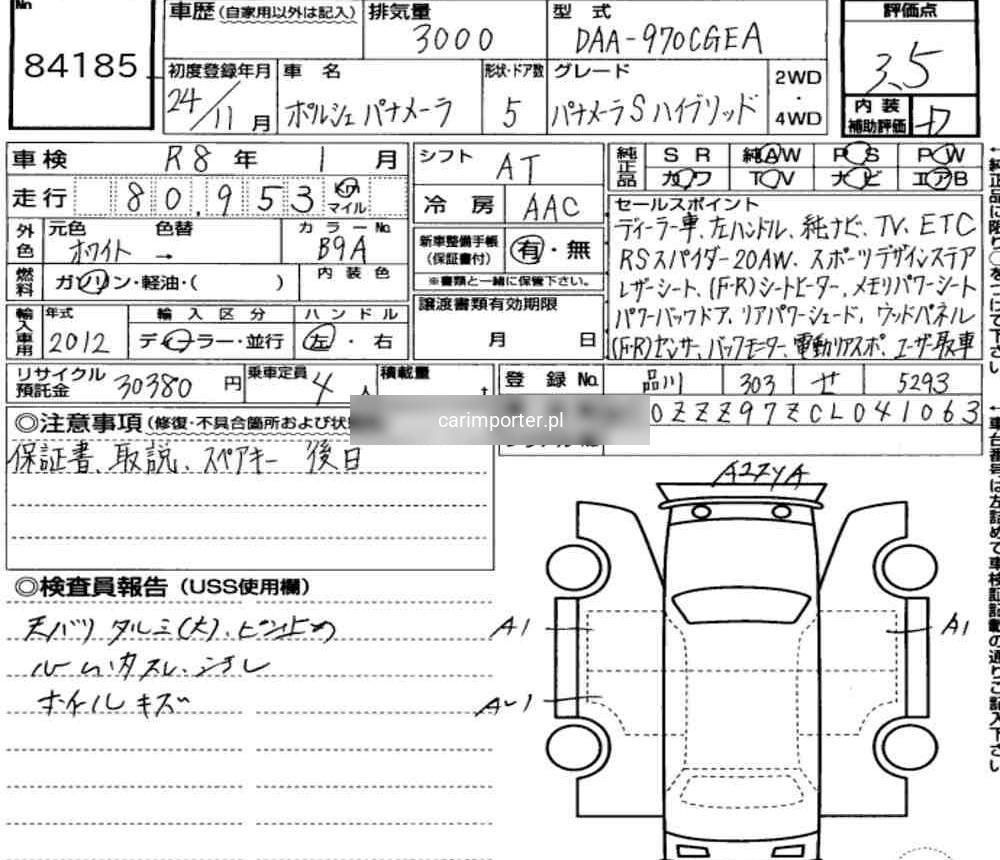 No
84185
車歴 (自家用以外は記入)
排気量
3000
型式
DAA-970CGEA
評価点
3.5
初度登録年月
24/11月
車名
ポルシェ パナメーラ
形状・ドア数
5
グレード
パナメーラS ハイブリッド
2WD
・
4WD
内装
補助評価
車検 R8年 1月
走行 80,953 Km
マイル
シフト AT
冷房 AAC
純正品
SR 純AW PS PW
カワ TV ナビ エアB
外色
元色 色替 カラーNo
ホワイト → B9A
燃料
ガソリン・軽油・( )
内装色
新車整備手帳
(保証書付)
有・無
※書類と一緒に保管下さい。
セールスポイント
ディーラー車、左ハンドル、純ナビ、TV、ETC
RSスパイダー20AW、スポーツデザインステア
レザーシート、(F・R)シートヒーター、メモリパワーシート
パワーバックドア、リアパワーシェード、ウッドパネル
(F・R)センサ、バックモニター、電動リアスポ、ユーザー買取車
輸入車用
年式
2012
輸入区分
ディーラー・並行
ハンドル
左・右
譲渡書類有効期限
月 日
リサイクル
預託金
30380円
乗車定員 4人
積載量 t
登録No. 品川 303 せ 5293
0ZZZ97ZCL041063
carimporter.pl
◎注意事項 (修復・不具合箇所および状
保証書、取説、スペアキー 後日
◎検査員報告 (USS使用欄)
天バリ タルミ(大)、ピン止め
ルーム内スレ、汚レ
ホイルキズ
A1
A1
←純正品に限り○をつけて下さい
←車台番号は左詰めで車検証記載の通りご記入下さい